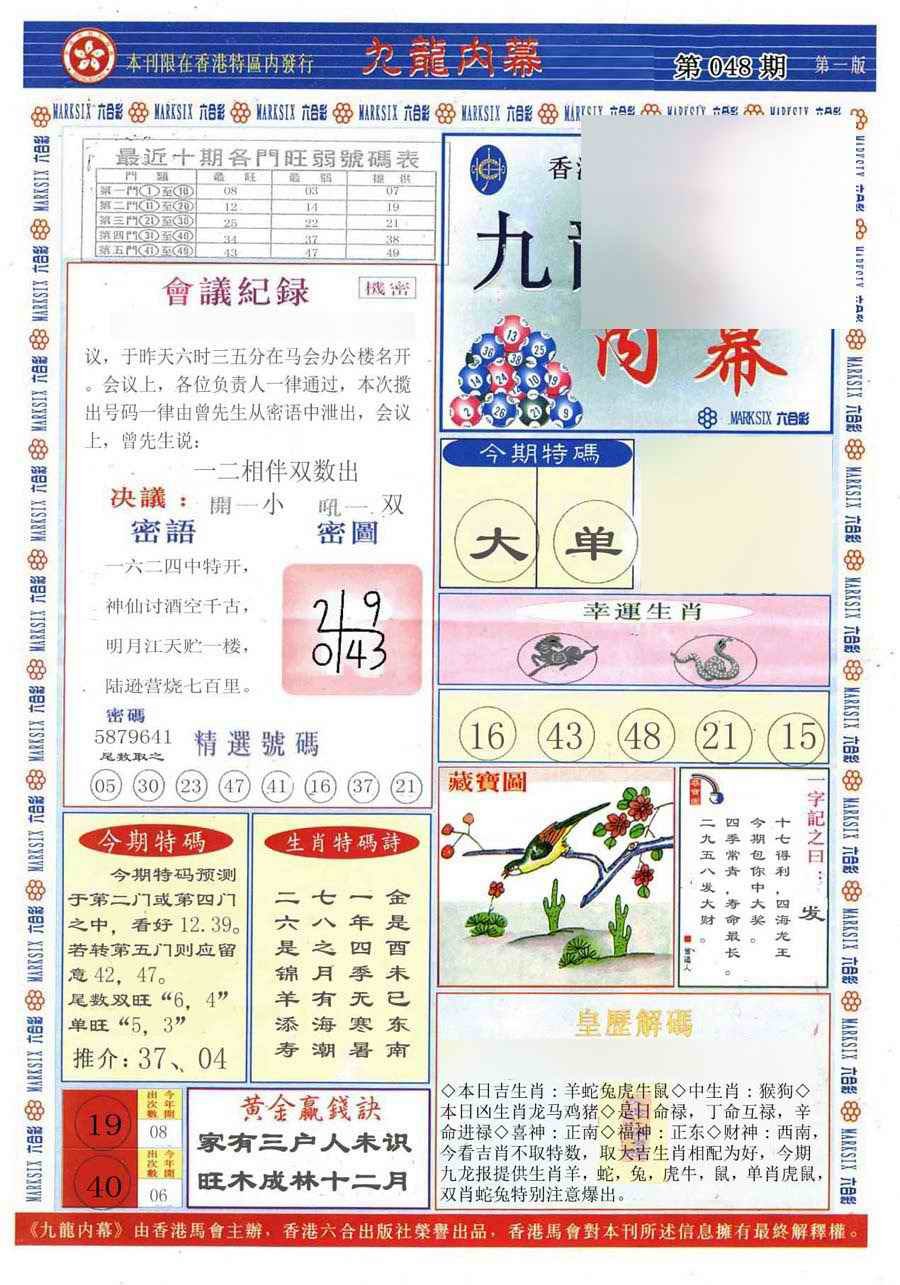 本刊限在香港特區内發行
九龍内幕
第 048 期
第一版
MARKSIX 六合彩
最近十期各門旺弱號碼表
門 類 最 旺 最 弱 提 供
第一門①至⑩ 08 03 07
第二門⑪至⑳ 12 14 19
第三門㉑至㉚ 25 22 21
第四門㉛至㊵ 34 37 38
第五門㊶至㊾ 43 47 49
九
内幕
13
36 38 25
14 24 10 19
2 26 21 9
MARKSIX 六合彩
會議紀録
機密
议，于昨天六时三五分在马会办公楼名开
。会议上，各位负责人一律通过，本次揽
出号码一律由曾先生从密语中泄出，会议
上，曾先生说：
一二相伴双数出
决議： 開一小 吼一 双
密語 密圖
一六二四中特开，
神仙讨酒空千古，
明月江天贮一楼，
陆逊营烧七百里。
2 9
0 43
密碼
5879641
尾数取之
精選號碼
05 30 23 47 41 16 37 21
今期特碼
大 单
幸運生肖
16 43 48 21 15
藏寶圖
一字記之曰： 发
十七得利，四海龙王
今期包你中大奖。
四季常青，寿命最长。
二九五八发大财。
今期特碼
今期特码预测
于第二门或第四门
之中，看好 12.39。
若转第五门则应留
意 42，47。
尾数双旺“6，4”
单旺“5，3”
推介：37、04
生肖特碼詩
金是酉未已东南
一年四季无寒暑
七八之月有海潮
二六是锦羊添寿
皇歷解碼
◇本日吉生肖：羊蛇兔虎牛鼠◇中生肖：猴狗◇
本日凶生肖龙马鸡猪◇是日命禄，丁命互禄，辛
命进禄◇喜神：正南◇福神：正东◇财神：西南，
今看吉肖不取特数，取大吉生肖相配为好，今期
九龙报提供生肖羊，蛇，兔，虎牛，鼠，单肖虎鼠，
双肖蛇兔特别注意爆出。
19
今年開出次數
08
40
今年開出次數
06
黄金贏錢訣
家有三户人未识
旺木成林十二月
《九龍内幕》由香港馬會主辦，香港六合出版社榮譽出品，香港馬會對本刊所述信息擁有最終解釋權。